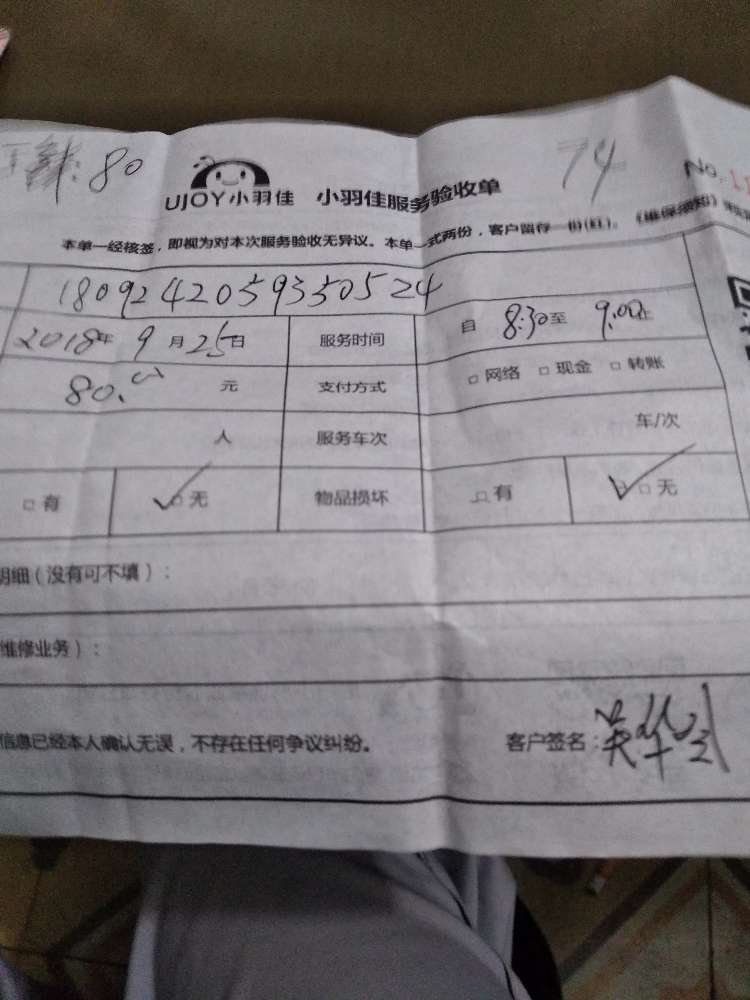 80 UJOY小羽佳 小羽佳服务验收单 74 No.
本单一经核签，即视为对本次服务验收无异议。本单一式两份，客户留存一份(红)。《维保须知》
180924205933050524
2018年 9月25日 服务时间 自 8:30至 9:00止
80.00 元 支付方式 □网络 □现金 □转账
人 服务车次 车/次
□有 ✓□无 物品损坏 □有 ✓□无
明细（没有可不填）：
维修业务）：
信息已经本人确认无误，不存在任何争议纠纷。 客户签名：